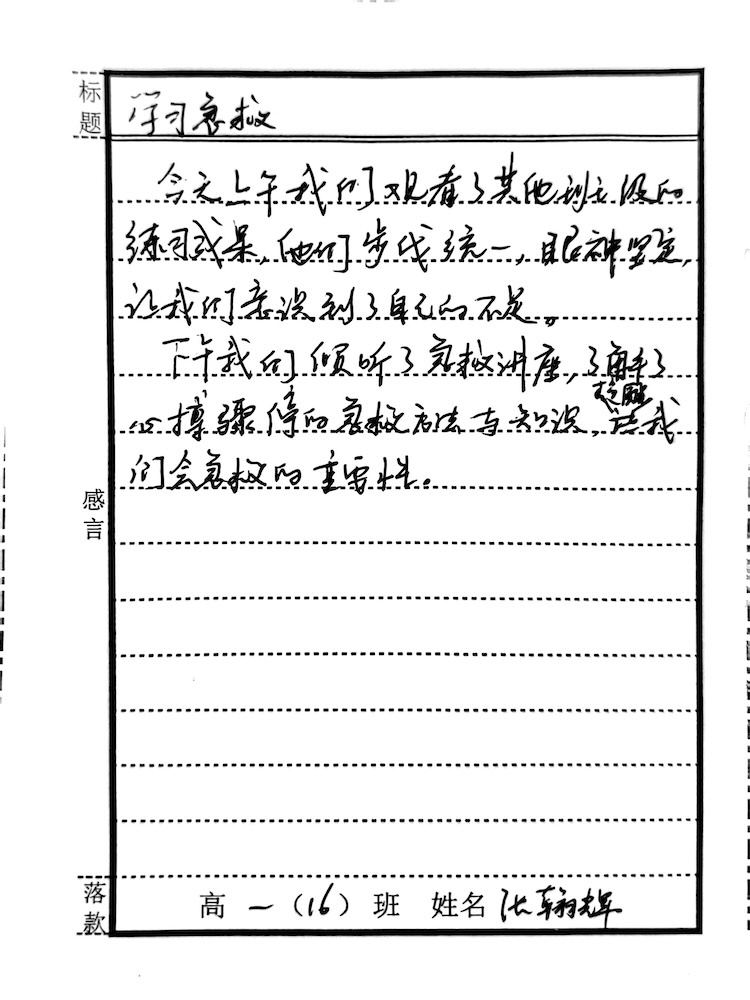 标题
学习急救
今天上午我们观看了其他班级的
练习成果,他们步伐统一,眼神坚定,
让我们意识到了自己的不足。
下午我们倾听了急救讲座,了解了
心搏骤停的急救方法与知识,提醒我
们会急救的重要性。
感言
落款
高一(16)班 姓名 张翰辉